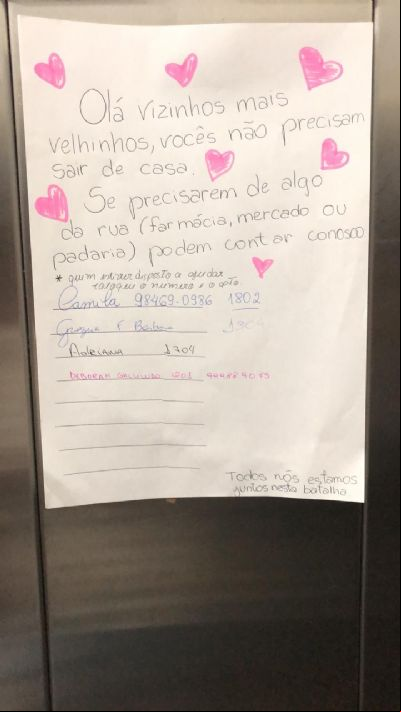 Olá vizinhos mais
velhinhos, vocês não precisam
sair de casa.
Se precisarem de algo
da rua (farmácia, mercado ou
padaria) podem contar conosco
* quem estiver disposto a ajudar
coloque o numero e o apto
Camila 98469-0986 1802
F
Adriana 1704
DEBORAH
Todos nós estamos
juntos nesta batalha